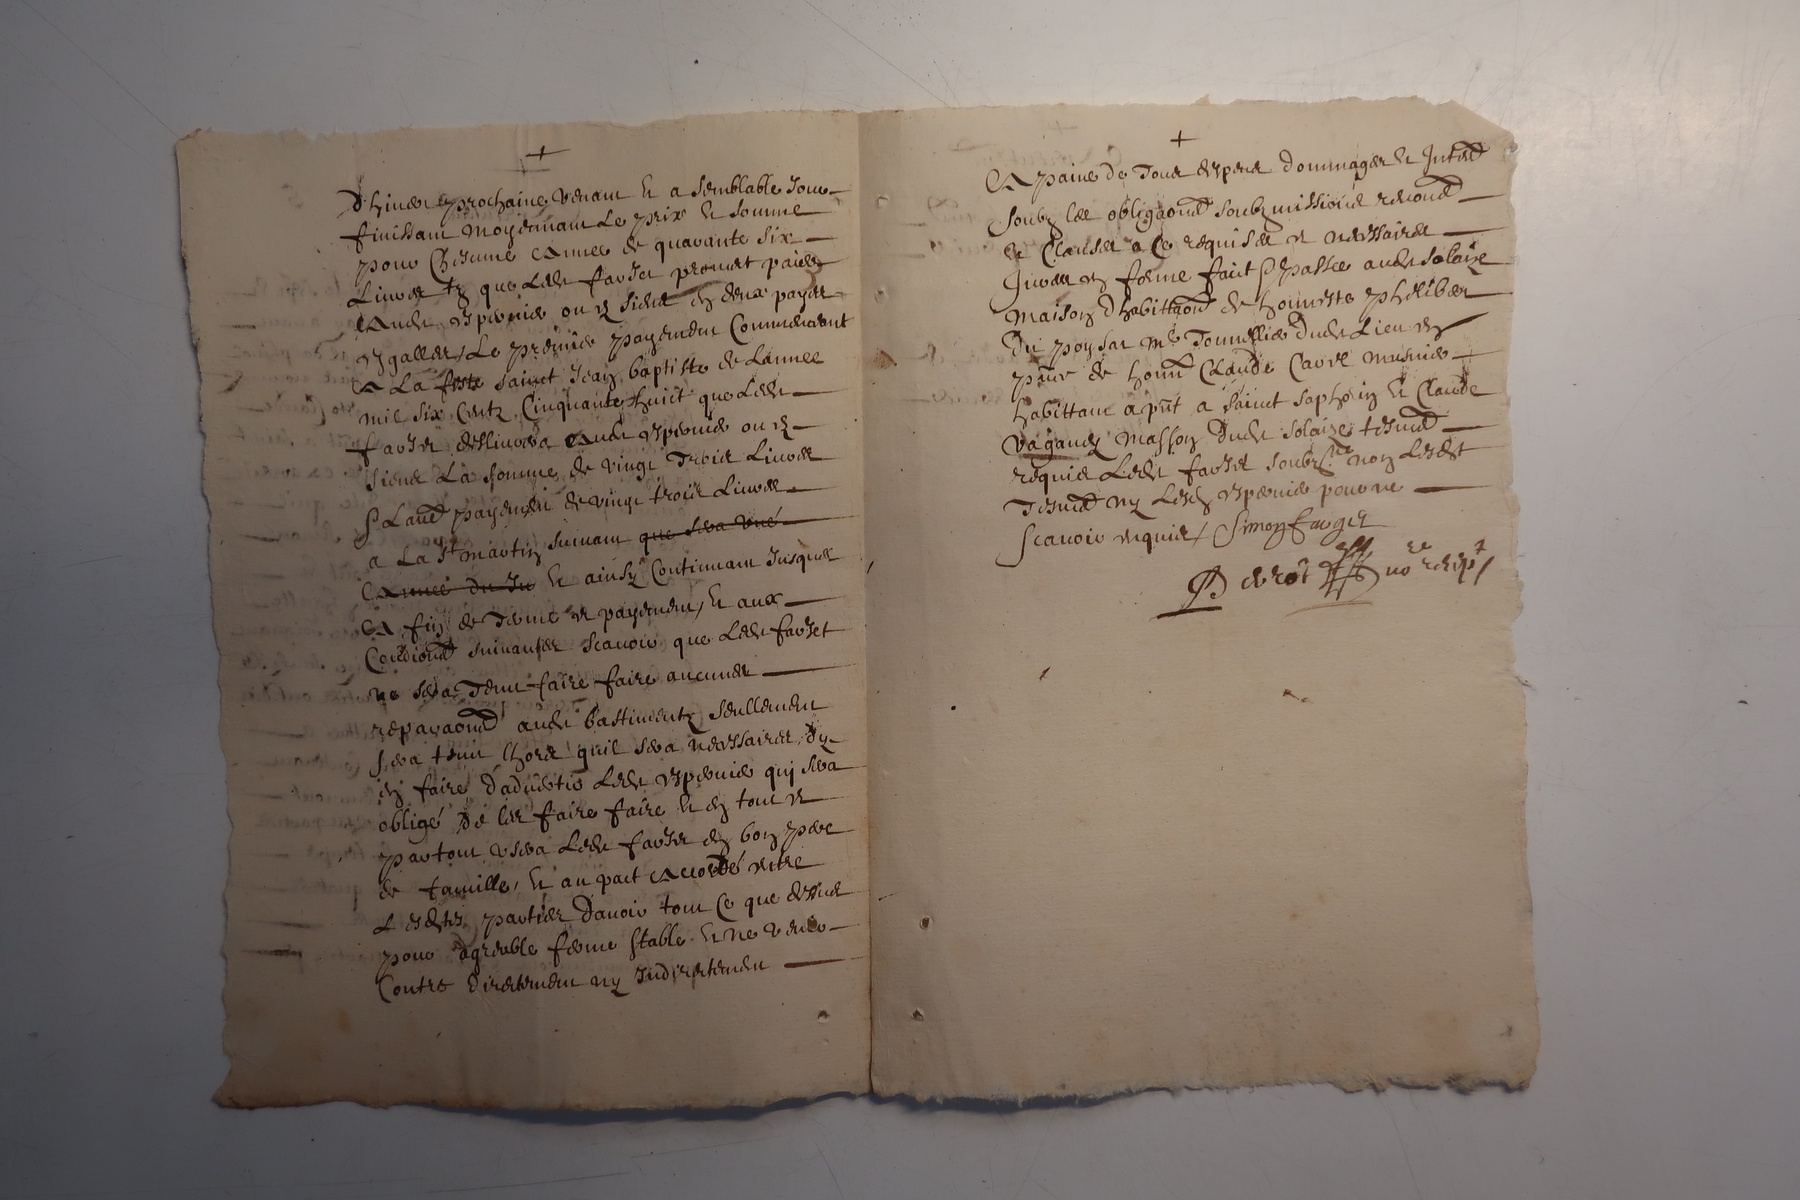 +
d'hiver prochaine venant et a semblable jour
finissant moyennant le prix et somme
pour chacune annee de quarante six
livres tz que ledt farget promet paier
audt ou es siens en deux payes
esgalles, le premier payement commencant
a la feste sainct Jean baptiste de lannee
mil six centz cinquante huict que ledt
farget deslivrera audt ou es
siens la somme de vingt trois livres
& laud payement de vingt trois livres
a la st martin suivant que sera une
annee du Jo et ainsy continuant jusques
a fin de terme et payement, et aux
condions suivantes scavoir que ledt farget
ne sera tenu faire faire aucunes
reparaons audt bastimentz seullement
sera tenu lhors quil sera necessaires dy
en faire d'advertir ledt qui sera
obligé de les faire faire et en tout et
partout usera ledt farget en bon pere
de famille, et au pact accordé entre
lesdtes parties d'avoir tout ce que dessus
pour agreable ferme stable et ne venir
contre directement ny indirectement
+
a paine de tous despens dommages et intestz
soubz les obligaons soubzmissions renons
et clauses a ce requises et necessaires
jurees en forme faict & passee audt solaize
maison d'habittaon de honneste philibert
du poysat me tonnellier dudt lieu en
pnce de honn claude cavet musnier
habittant a pnt a sainct saphorin et claude
vaganey masson dudt solaize tesmoins
requis ledt farget soubzne non lesdt
tesmoins ny ledt pour ne
scavoir enquis / Simon farget
derot no re recip